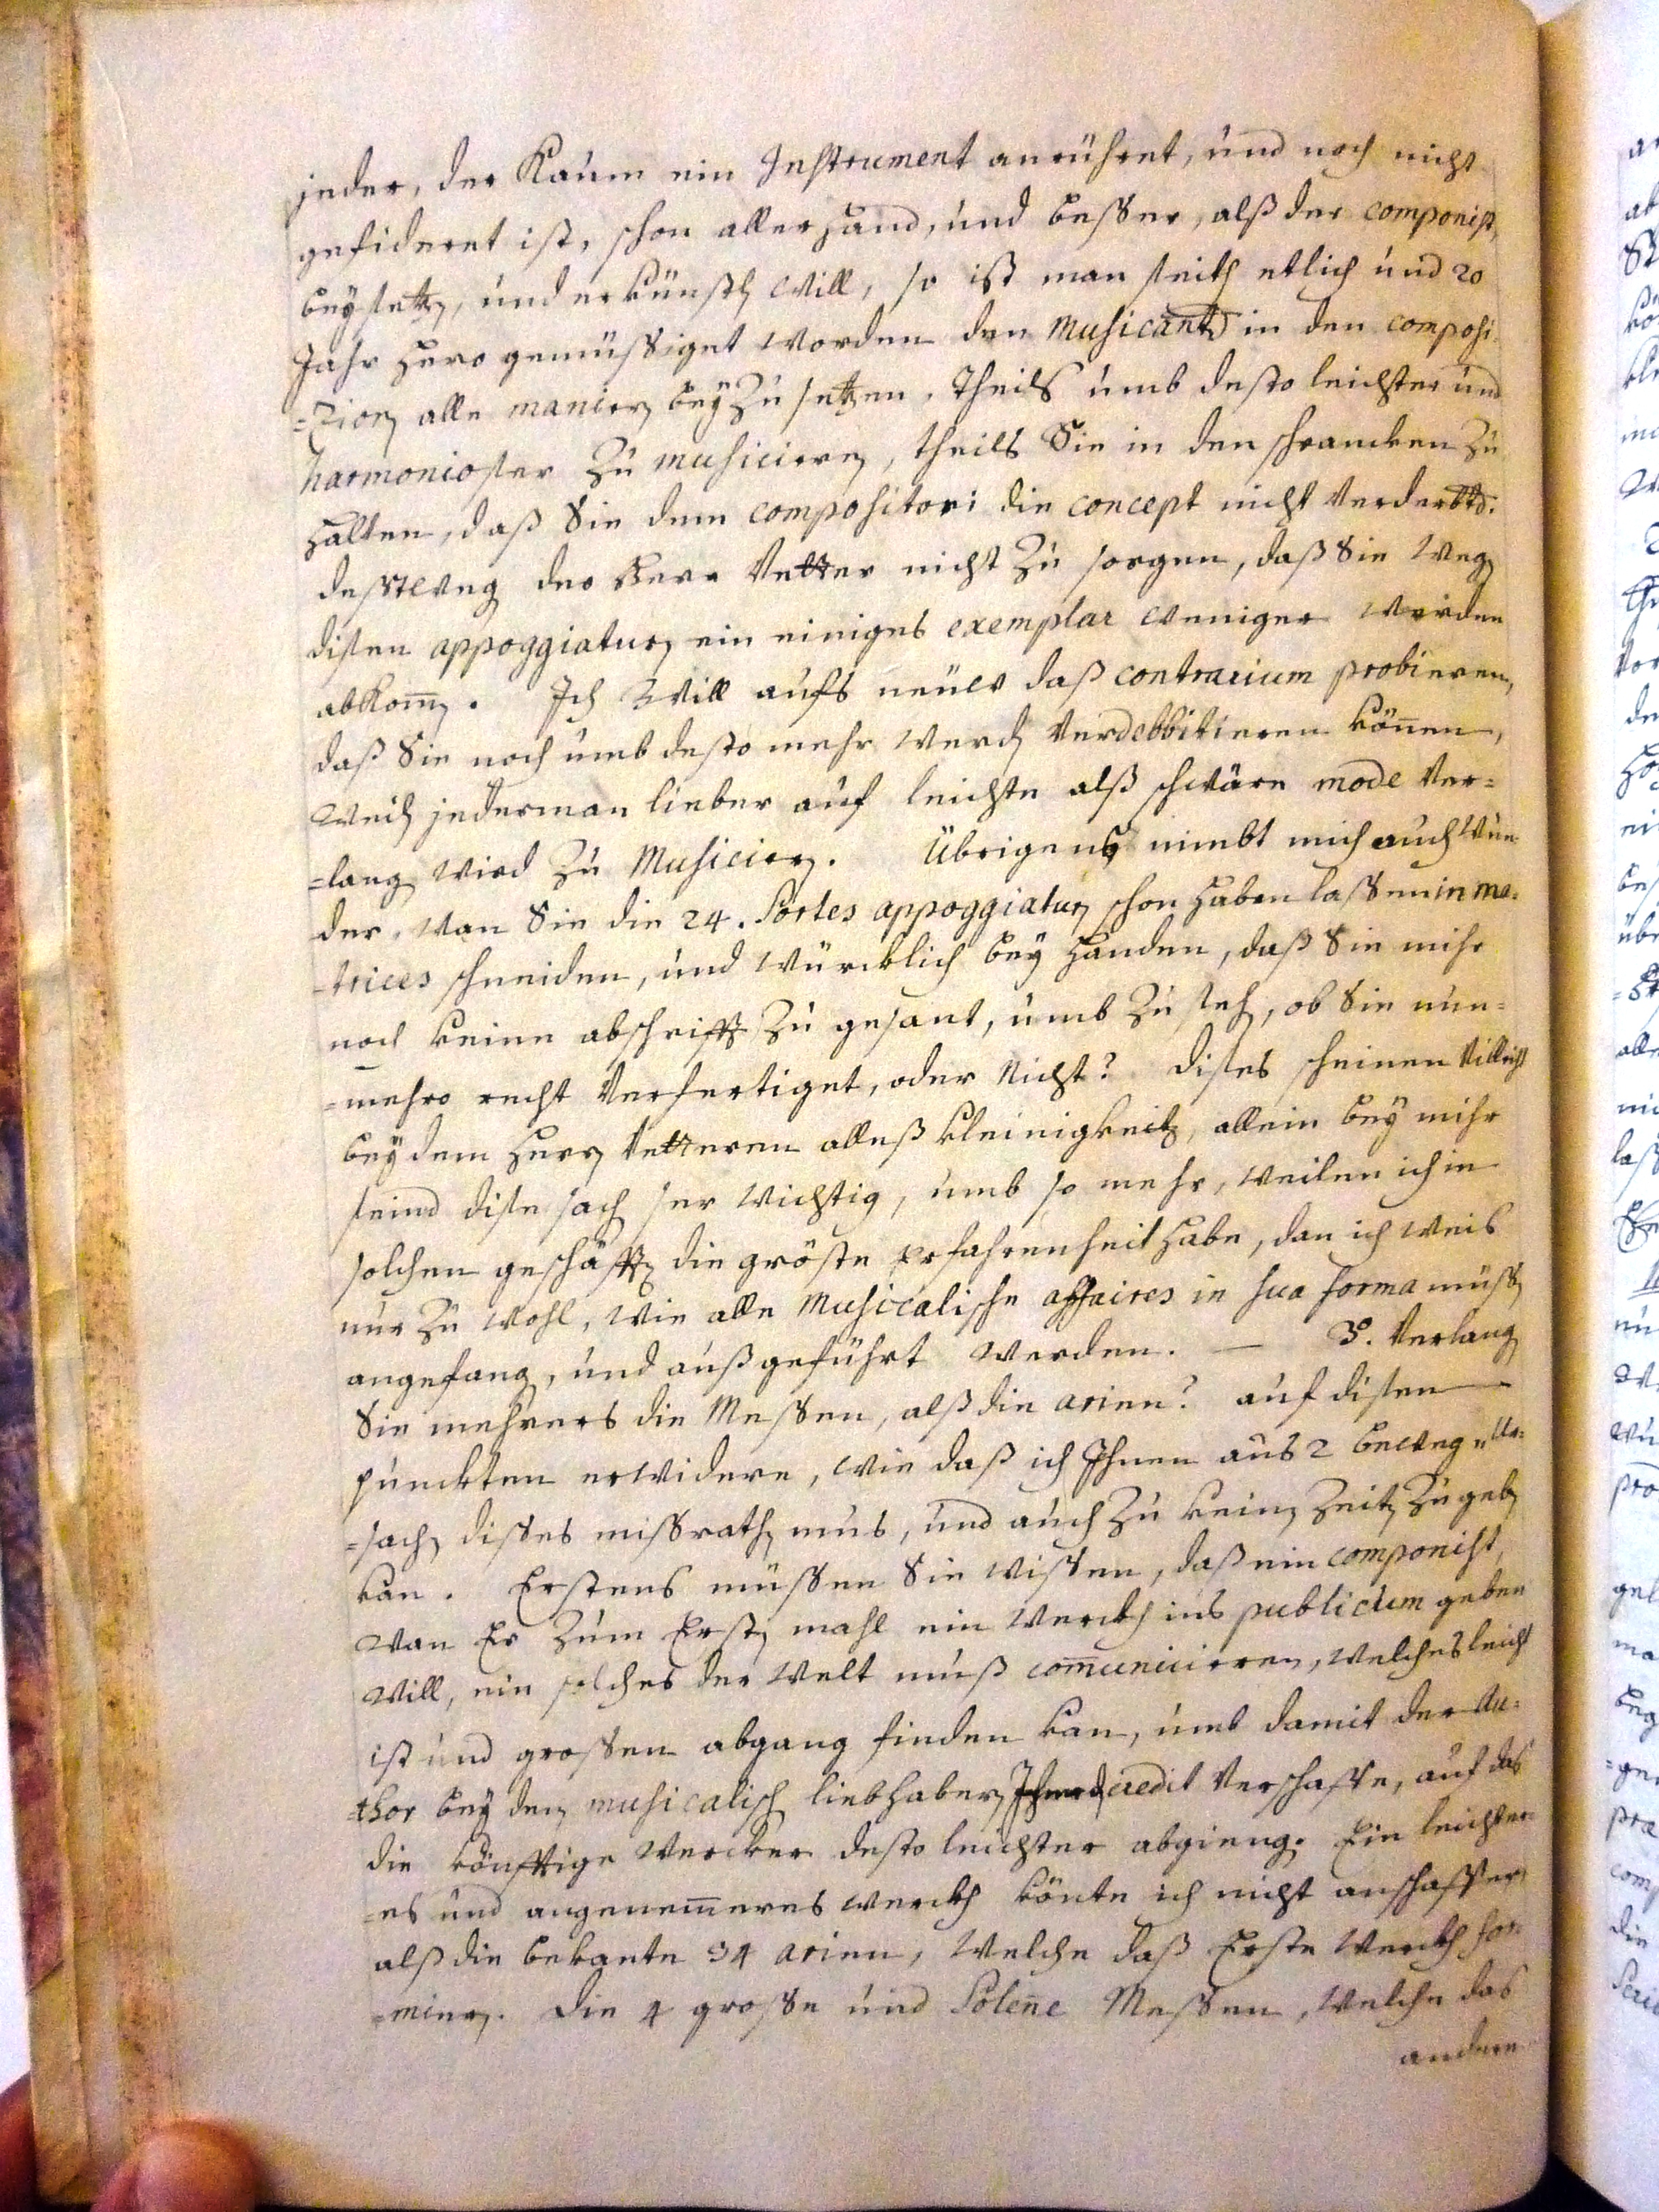 jeder, der Kaum ein Instrument anrühret, und noch nicht
gefideret ist, schon aller hand, und besser, alß der componist,
beysetzen, und erkünstlen will, so ist man seith etlich und 20
Jahr hero gemüssiget worden den Musicanten in den composi-
=zionen alle manieren beyzusetzen, theils umb desto leichter und
harmonioser zu musicieren, theils Sie in den schrancken zu
halten, daß Sie dem compositori die concept nicht verderbten.
desstwegen der Herr Vetter nicht zu sorgen, daß Sie wegen
disen appoggiaturen ein einiges exemplar weniger werden
abkommen. Ich will aufs neüe daß contrarium probieren,
daß Sie noch umb desto mehr werden verdebbitieren können,
weilen jederman lieber auf leichte alß schwäre mode ver=
=langen wird zu Musicieren. Übrigens nimbt mich auch wun
der, wan Sie die 24. Sortes appoggiaturen schon haben lassen in ma=
=trices schneiden, und würcklich bey handen, daß Sie mihr
noch keine abschrifft zu gesant, umb zu sehen, ob Sie nun=
=mehro recht verfertiget, oder nicht? dises scheinen villeicht
bey dem Herrn Vetteren alleß kleinigkeiten, allein bey mihr
seind dise sachen ser wichtig, umb so mehr, weilen ich in
solchen geschäfften die gröste erfahrenheit habe, dan ich weis
nur zu wohl, wie alle Musicalische affaires in sua forma müssen
angefangen, und außgeführt werden. — 3. Verlangen
Sie mehrers die Messen, alß die arien? auf disen
puncten erwidere, wie daß ich Ihnen aus 2 beweg Ur=
=sachen disses missrathen mus, und auch zu keinen Zeiten zu geben
kan. Erstens müssen Sie wissen, daß ein componist,
wan Er zum Ersten mahl ein werckh ins publicum geben
will, ein solches der welt muß communicieren, welches leicht
ist und grossen abgang finden kan, umb damit der Au=
=thor bey den musicalischen liebhaberen credit verschaffe, auf das
die könfftige wercker desto leichter abgiengen. Ein leichter=
=es und angenemmeres werckh könte ich nicht anschaffen
alß die bekante 34 arien, welche daß Erste werckh for=
=mieren. die 4 grosse und Solenne Messen, welche das
andere